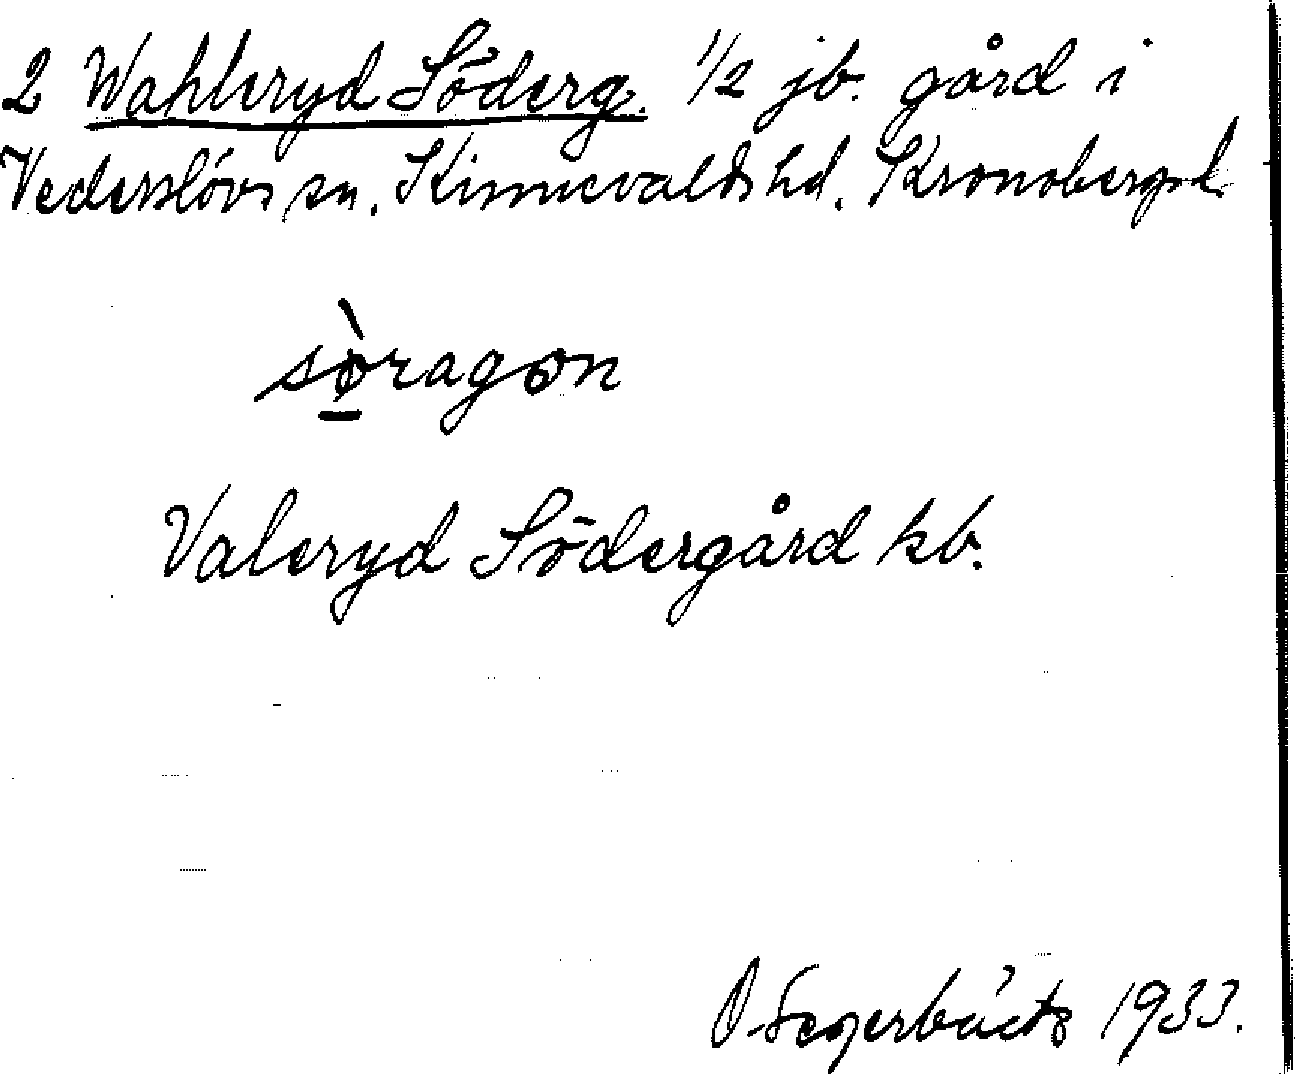 2 Wahleryd Söderg. 1/2 jb. gård i
Vederslövs sn. Kinnevalds hd. Kronobergs l.
sø̀ragon
Valeryd Södergård kb.
O Segerbäck 1933.